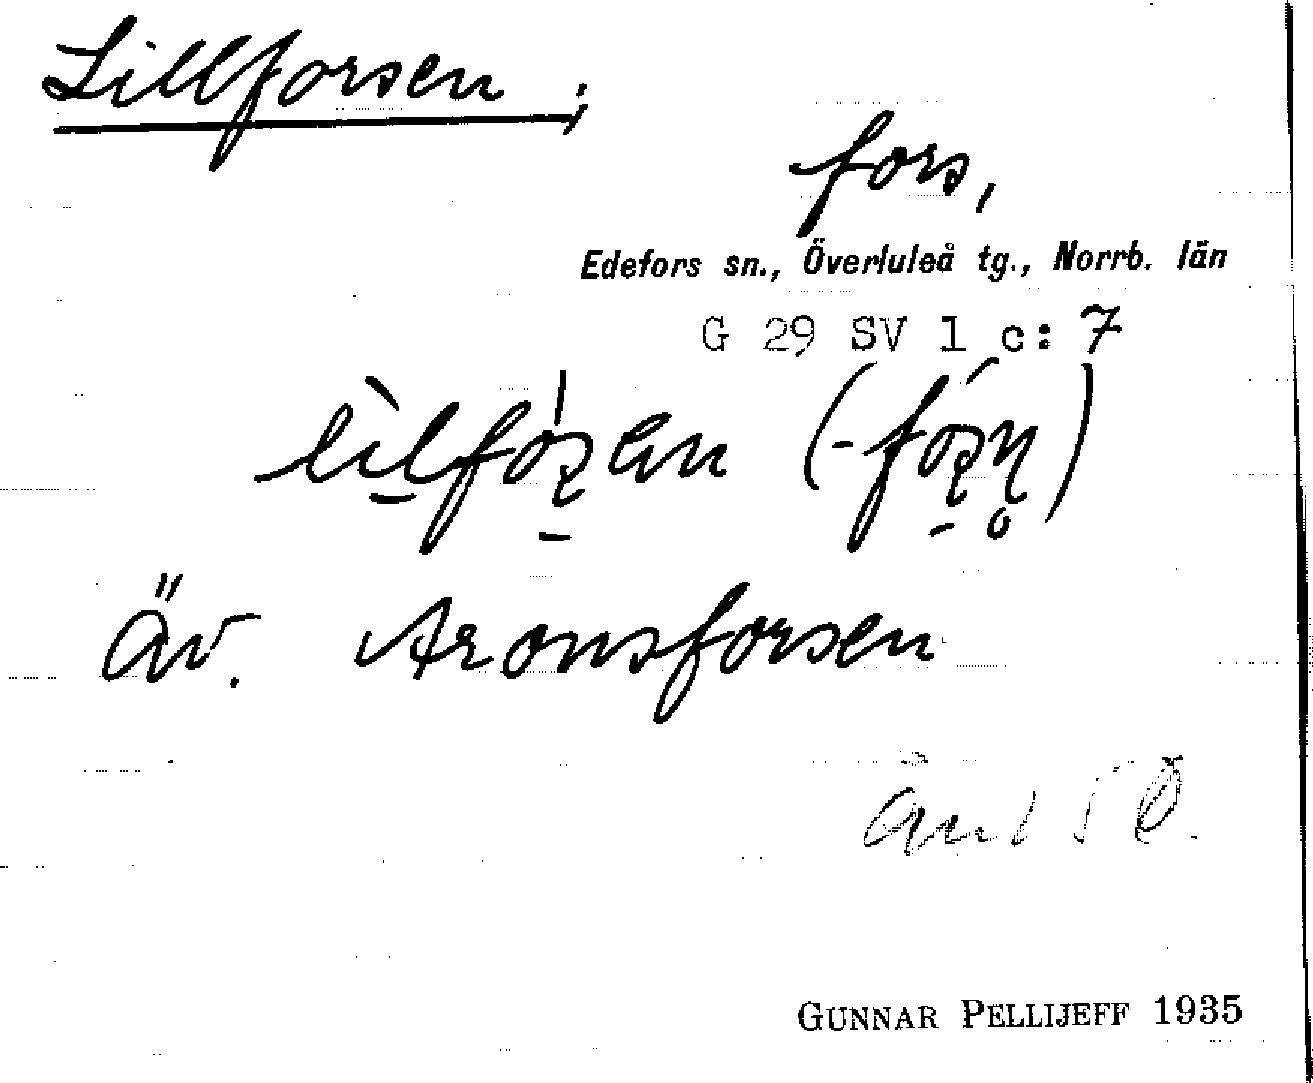 Lillforsen;
fors,
Edefors sn., Överluleå tg., Norrb. län
G 29 SV 1 c: 7
Äv. Aronsforsen
GUNNAR PELLIJEFF 1935